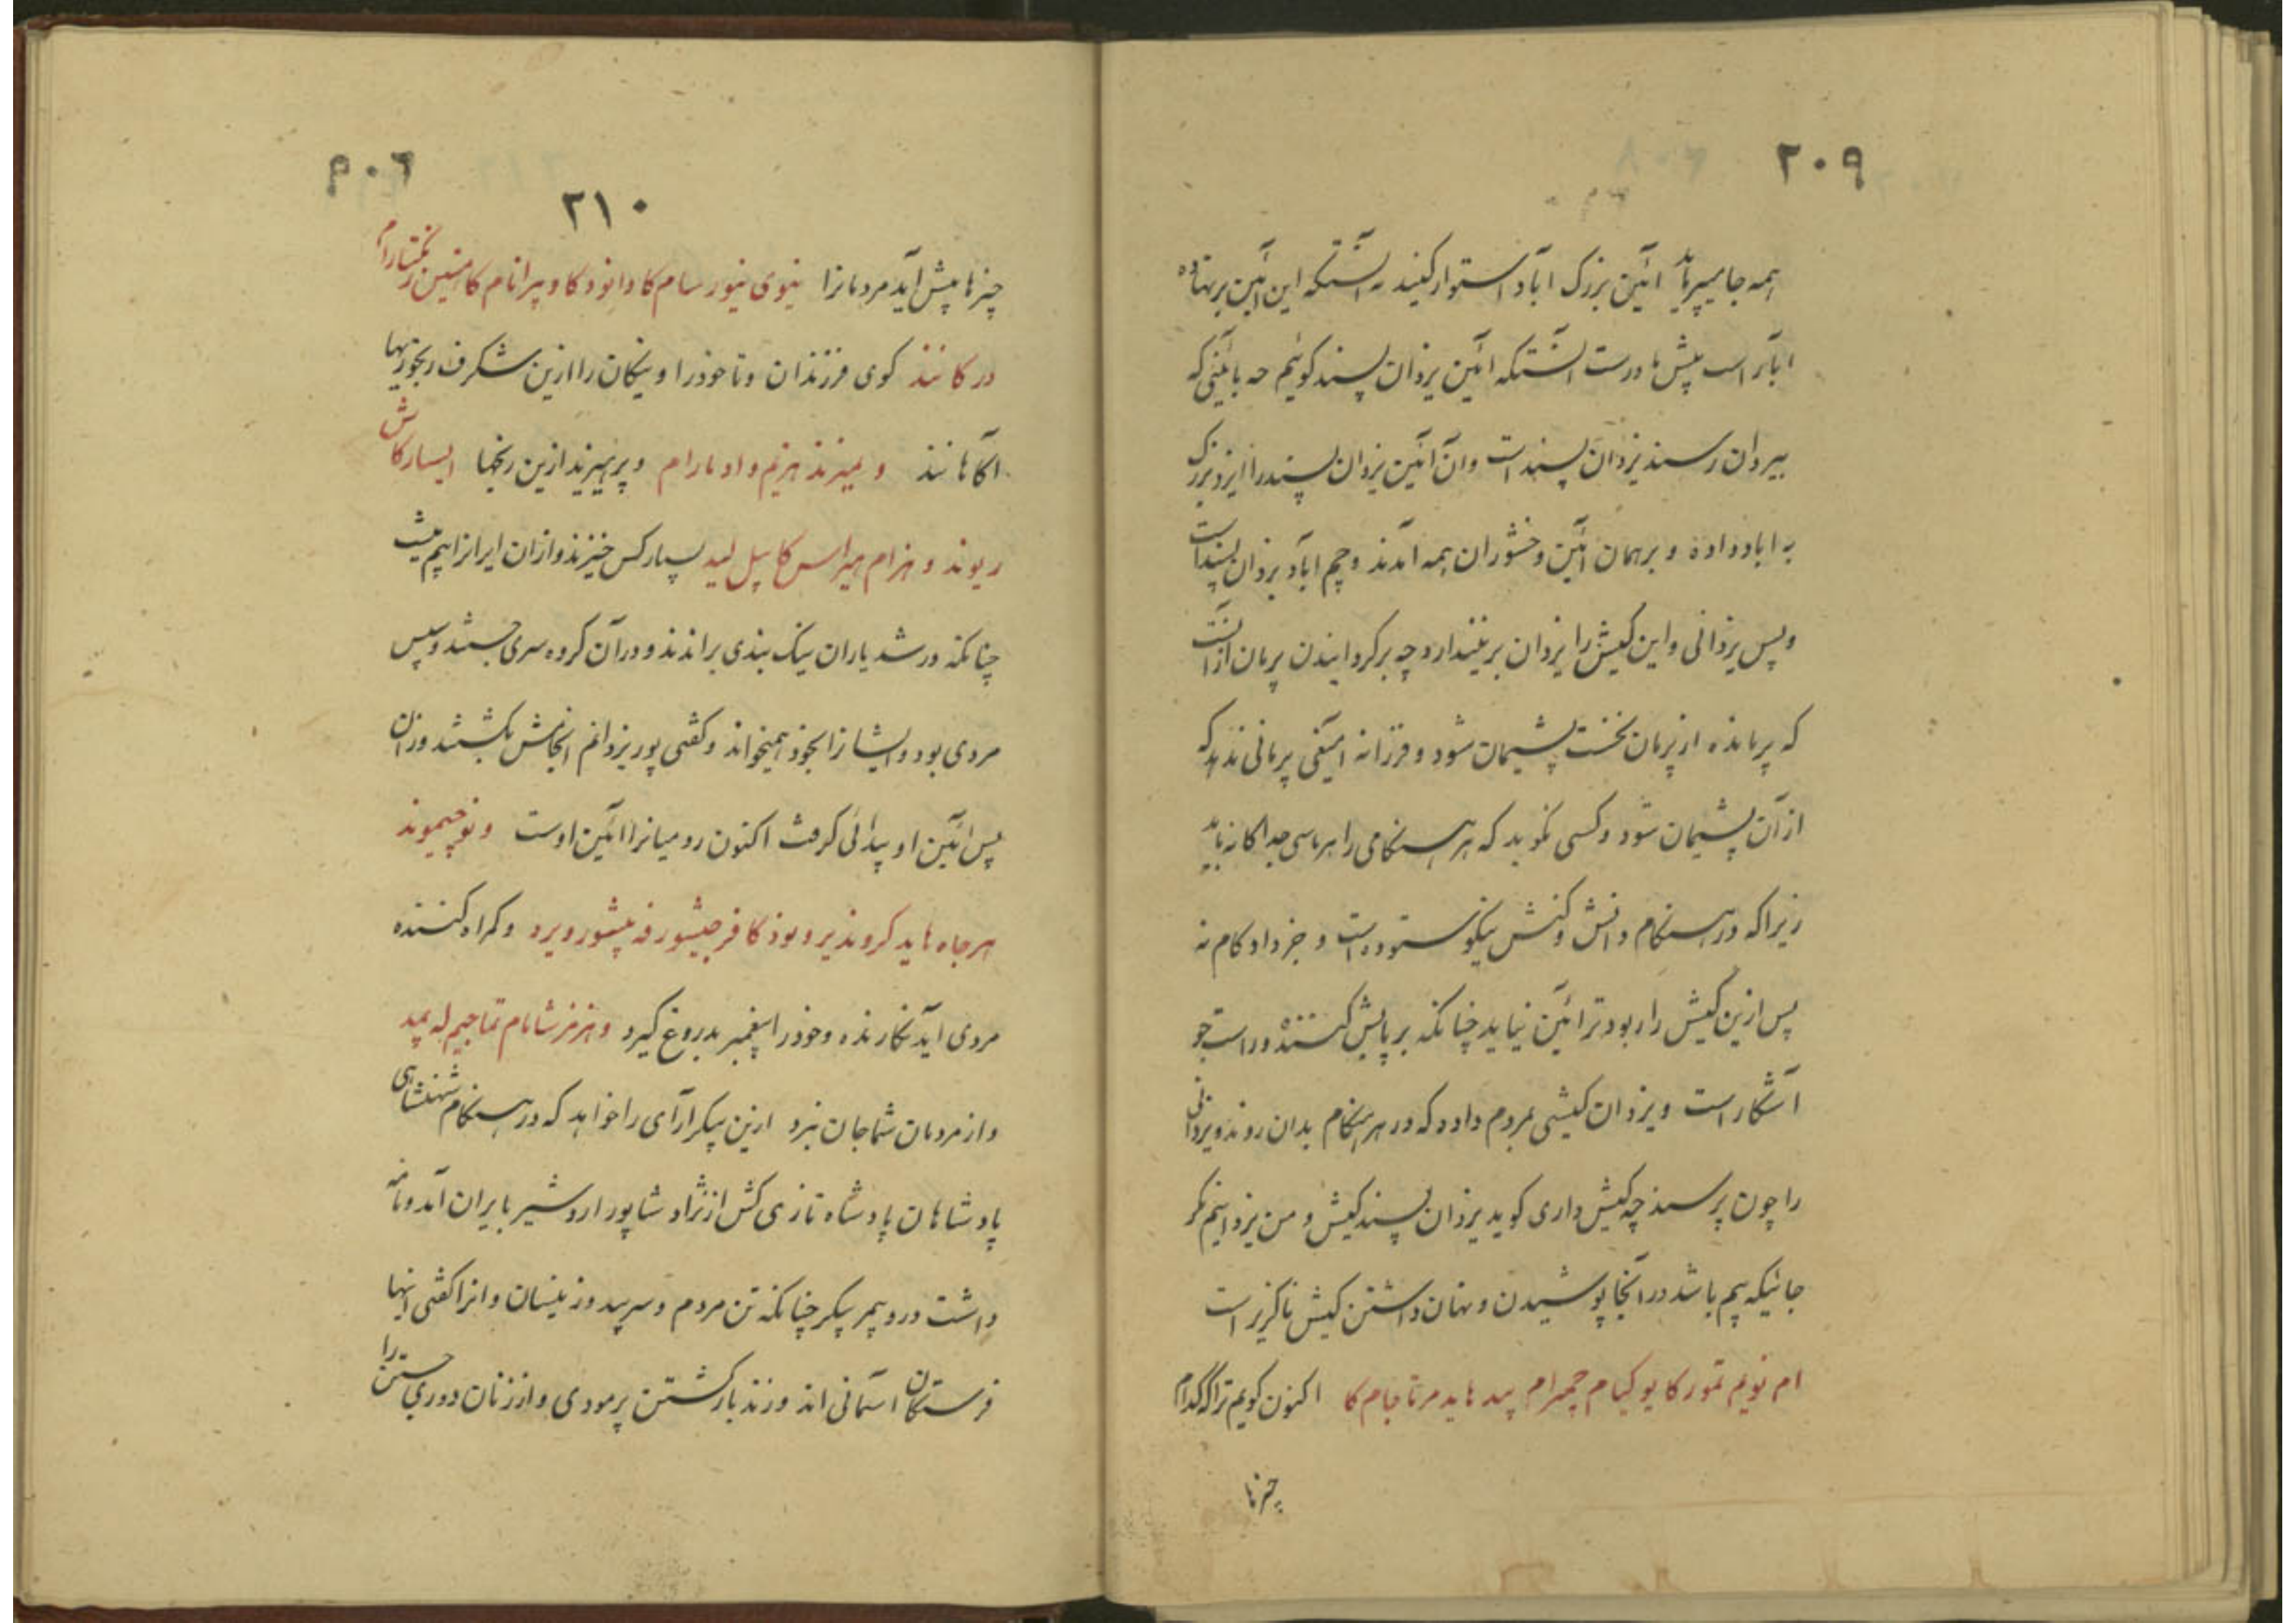 ۲۰۹
همه جا میپرماید آئین بزرگ اباد استوار کنید نه آنستکه این آئین برتها ده
اباد راست پیش ما درست آنستکه ائین یزدان پسند گوئیم چه بائینی که
بیزدان رسند یزدان پسند است وان آئین یزدان پسند را ایزد بزرگ
به اباد داده و بر همان آئین وخشوران همه آمدند و چم اباد یزدان پسند است
و پس یزدانی و این کیش را یزدان بر نیندازد چه برگردانیدن پرمان ازانست
که پرمانده از پرمان نخست پشیمان شود و فرزانه آمیغی پرمانی ندهد که
از آن پشیمان شود و کسی نگوید که هر هنگامی را هرماسی جداگانه باید
زیرا که در هر هنگام دانش و کنش نیکو ستوده است و جز داد کام نه
پس ازین کیش راربودتر ائین نیاید چنانکه بر پایش کننده و راست جو
آشکار است و یزدان کیشی بمردم داده که در هر هنگام بدان روند و یزدانی
را چون پرسند چه کیش داری گوید یزدان پسند کیش و من یزدانیم مگر
جائیکه بیم باشد در انجا پوشیدن و نهان داشتن کیش ناگزیر است
ام نویم تمور کا یو کیام چمرام پید هاید مرتاجام کا اکنون گویم ترا که کدام
چیزها
۲۱۰
چیزها پیش آید مردمانرا نیوی نیور سام کا دانود کا و پیرانام کا
در کانند گوی فرزندان و تا خودرا و نیکان را ازین شگرف رنجوریها
آگاهانند و میزند هزیم واد مارام و پرهیزند ازین رنجها ایسار کاش
ریوند و هزام هیراس کا پیل لید بسیار کس خیزند وازان ایرانرا بیم نیست
چنانکه در شد یاران نیک بندی براندند و در آن گروه سری جستند و سپس
مردی بود و ایشانرا بخود همیخواند و گفتی پور یزدانم انجامش بکشتند وزان
پس ائین او پیدائی گرفت اکنون رومیانرا آئین اوست و نوخیموند
هر جاه هاید کروندیر و بود کا فر جیشور فه پیشور ویرد و گمراه کننده
مردی آید نگارنده و خودرا پیغمبر بدروغ گیرد و هزمز شامام تما جیم له یمید
و از مردمان شما جان نبرد ازین پیکر آرای را خواهد که در هنگام شهنشاهی
پادشاهان پادشاه تازی کش از نژاد شاپور اردشیر بایران آمد و نامه
داشت درو بیمر پیکر چنانکه تن مردم و سر پیدوزینسان و انرا گفتی اینها
فرستگان آسمانی اند و زندبار کشتن پرمودی و از زنان دوری جستن را